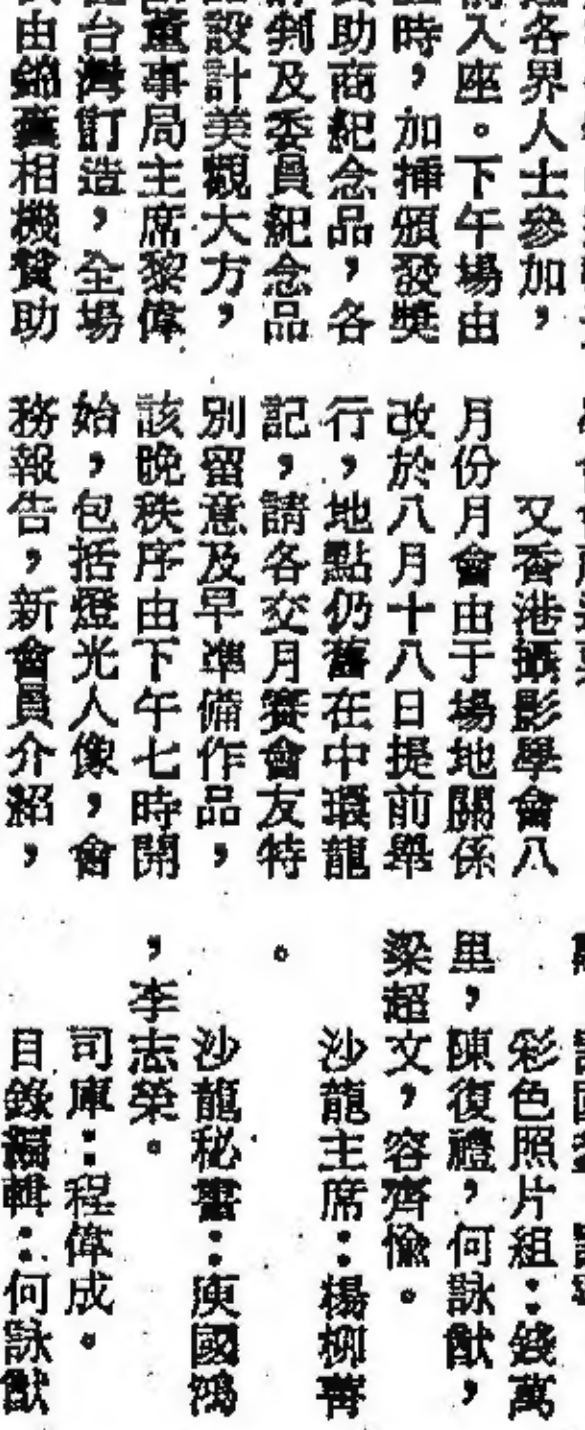 各界人士參加，
入座。下午場由
時，加插頒發獎
助商紀念品，各
及委員紀念品
設計美觀大方，
董事局主席黎偉
台灣訂造，全場
由錦 相機贊助
又香港攝影學會八
月份月會由于場地關係
改於八月十八日提前舉
行，地點仍舊在中環龍
記，請各交月賽會友特
別留意及早準備作品，
該晚秩序由下午七時開
始，包括燈光人像，會
務報告，新會員介紹，
彩色照片組：錢萬
里，陳復禮，何詠猷，
梁超文，容齊愉。
沙龍主席：楊柳菁
。
沙龍秘書：庾國鴻
，李志榮。
司庫：程偉成。
目錄編輯：何詠猷